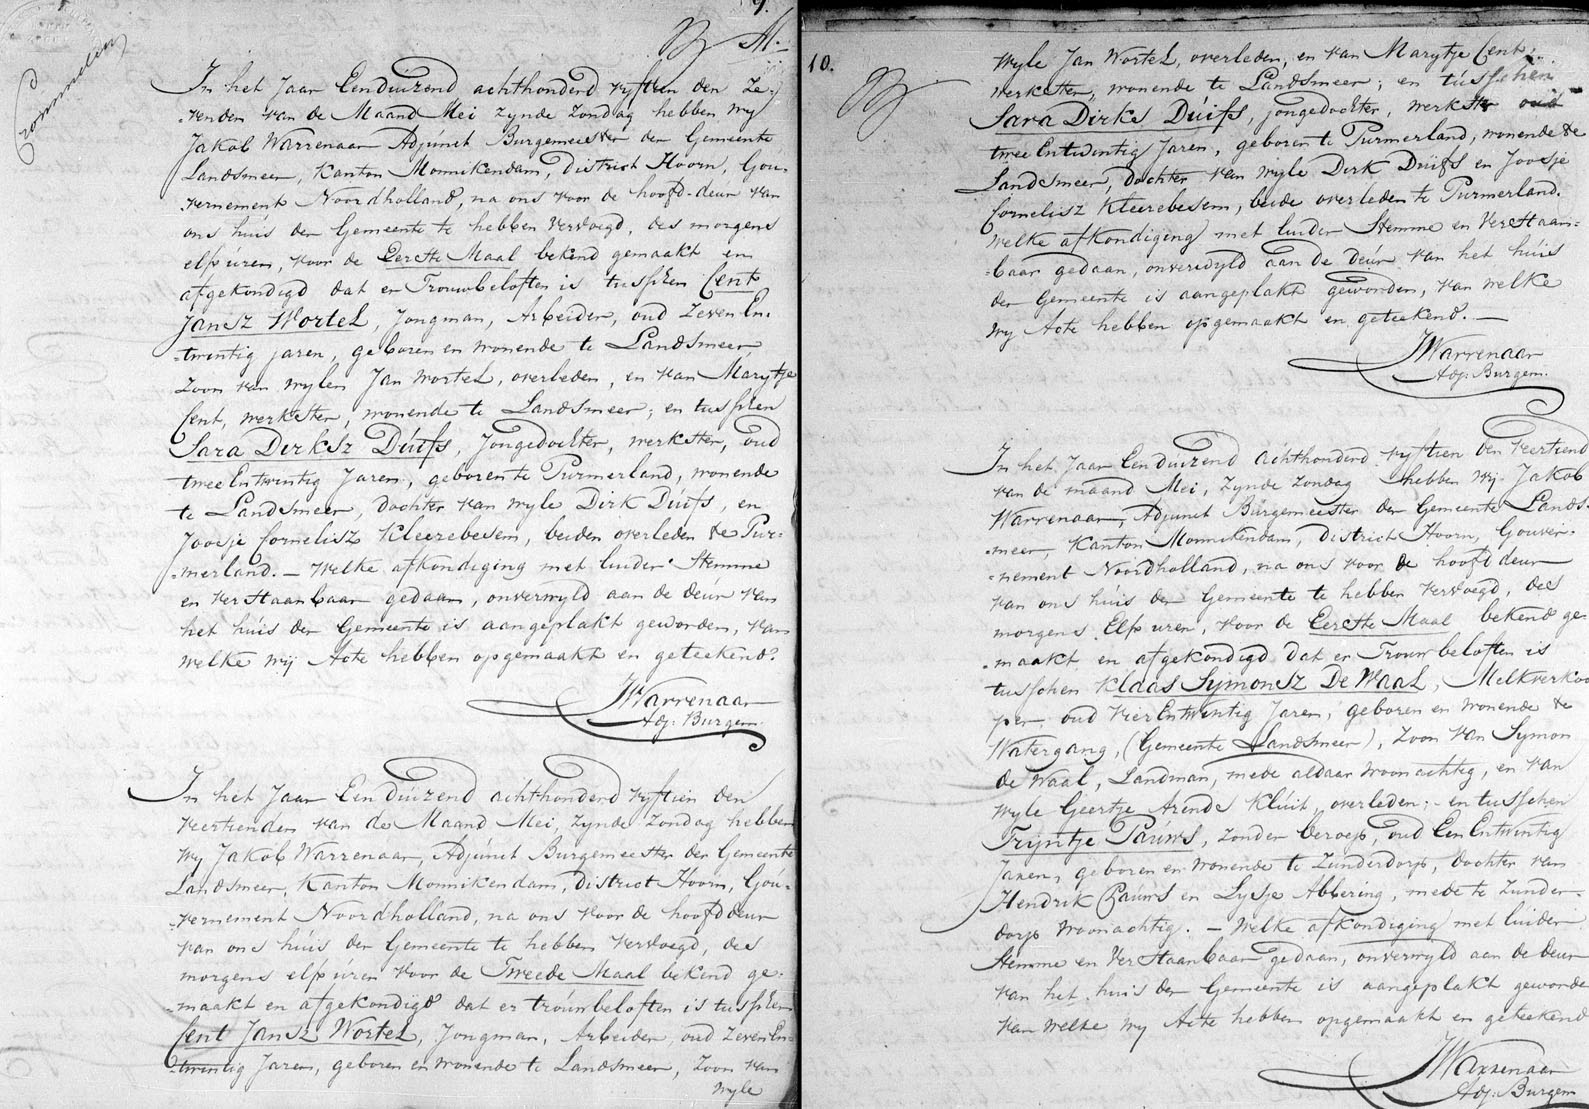 9.
Crommelin
In het Jaar Eenduizend achthonderd vyftien den Ze-
-venden van de Maand Mei zynde Zondag hebben wy
Jakob Warrenaar Adjunct Burgemeester der Gemeente
Landsmeer, Kanton Monnikendam, District Hoorn, Gou-
vernement Noordholland, na ons voor de hoofd-deur van
ons huis der Gemeente te hebben vervoegd, des morgens
elf uren, voor de Eerste Maal bekend gemaakt en
afgekondigd dat er Trouwbeloften is tusschen Cent
Jansz Wortel, Jongman, Arbeider, oud Zeven En-
-twintig jaren, geboren en wonende te Landsmeer,
Zoon van wylen Jan Wortel, overleden, en van Marytje
Cent, werkster, wonende te Landsmeer; en tusschen
Sara Dirksz Duifs, Jongedochter, werkster, oud
twee Entwintig Jaren, geboren te Purmerland, wonende
te Landsmeer, dochter van wyle Dirk Duifs, en
Joosje Cornelisz Kleerebesem, beiden overleden te Pur-
-merland. — Welke afkondiging met luider Stemme
en verstaanbaar gedaan, onverwyld aan de deur van
het huis der Gemeente is aangeplakt geworden, van
welke wij Acte hebben opgemaakt en geteekend.
JWarrenaar
Adj: Burgem.
In het Jaar Een duizend achthonderd vyftien den
veertienden van de Maand Mei, zynde Zondag hebben
wy Jakob Warrenaar, Adjunct Burgemeester der Gemeente
Landsmeer, Kanton Monnikendam, District Hoorn, Gou-
-vernement Noordholland, na ons voor de hoofd deur
van ons huis der Gemeente te hebben vervoegd, des
morgens elf uren voor de Tweede Maal bekend ge-
-maakt en afgekondigd dat er trouwbeloften is tusschen
Cent Jansz Wortel, Jongman, Arbeider, oud Zeven En-
-twintig Jaren, geboren en wonende te Landsmeer, Zoon van
wyle
10.
wyle Jan Wortel, overleden, en van Marytje Cent,
werkster, wonende te Landsmeer; en tusschen
Sara Dirks Duifs, jongedochter, werkster oud
twee Entwintig Jaren, geboren te Purmerland, wonende te
Landsmeer, dochter van wyle Dirk Duifs en Joosje
Cornelisz Kleerebesem, beide overleden te Purmerland.
welke afkondiging met luider Stemme en Verstaan-
-baar gedaan, onverwyld aan de deur van het huis
der Gemeente is aangeplakt geworden, van welke
wy Acte hebben opgemaakt en geteekend. —
JWarrenaar
Adj: Burgem.
In het Jaar Eenduizend achthonderd vyftien den veertiend
van de maand Mei, zynde Zondag hebben wij Jakob
Warrenaar, Adjunct Burgemeester der Gemeente Lands-
-meer, Kanton Monnikendam, District Hoorn, Gouver-
-nement Noordholland, na ons voor de hoofd deur
van ons huis der Gemeente te hebben vervoegd, des
morgens Elf uren, voor de Eerste Maal bekend ge-
-maakt en afgekondigd dat er Trouwbeloften is
tusschen Klaas Symonsz De Waal, Melkverkoo
per, oud vier Entwintig Jaren, geboren en wonende te
Watergang, (Gemeente Landsmeer), Zoon van Symon
de Waal, Landman, mede aldaar woonachtig, en van
wyle Geertje Arends Kluit, overleden; - en tusschen
Tryntje Pauws, zonder beroep, oud Een Entwintig
Jaren, geboren en wonende te Zunderdorp, dochter van
Hendrik Pauws en Lysje Abbering, mede te Zunder-
dorp woonachtig. — Welke afkondiging met luider
Stemme en Verstaanbaar gedaan, onverwyld aan de deur
van het huis der Gemeente is aangeplakt geworde
van welke wy Acte hebben opgemaakt en geteekend
JWarrenaar
Adj: Burgem